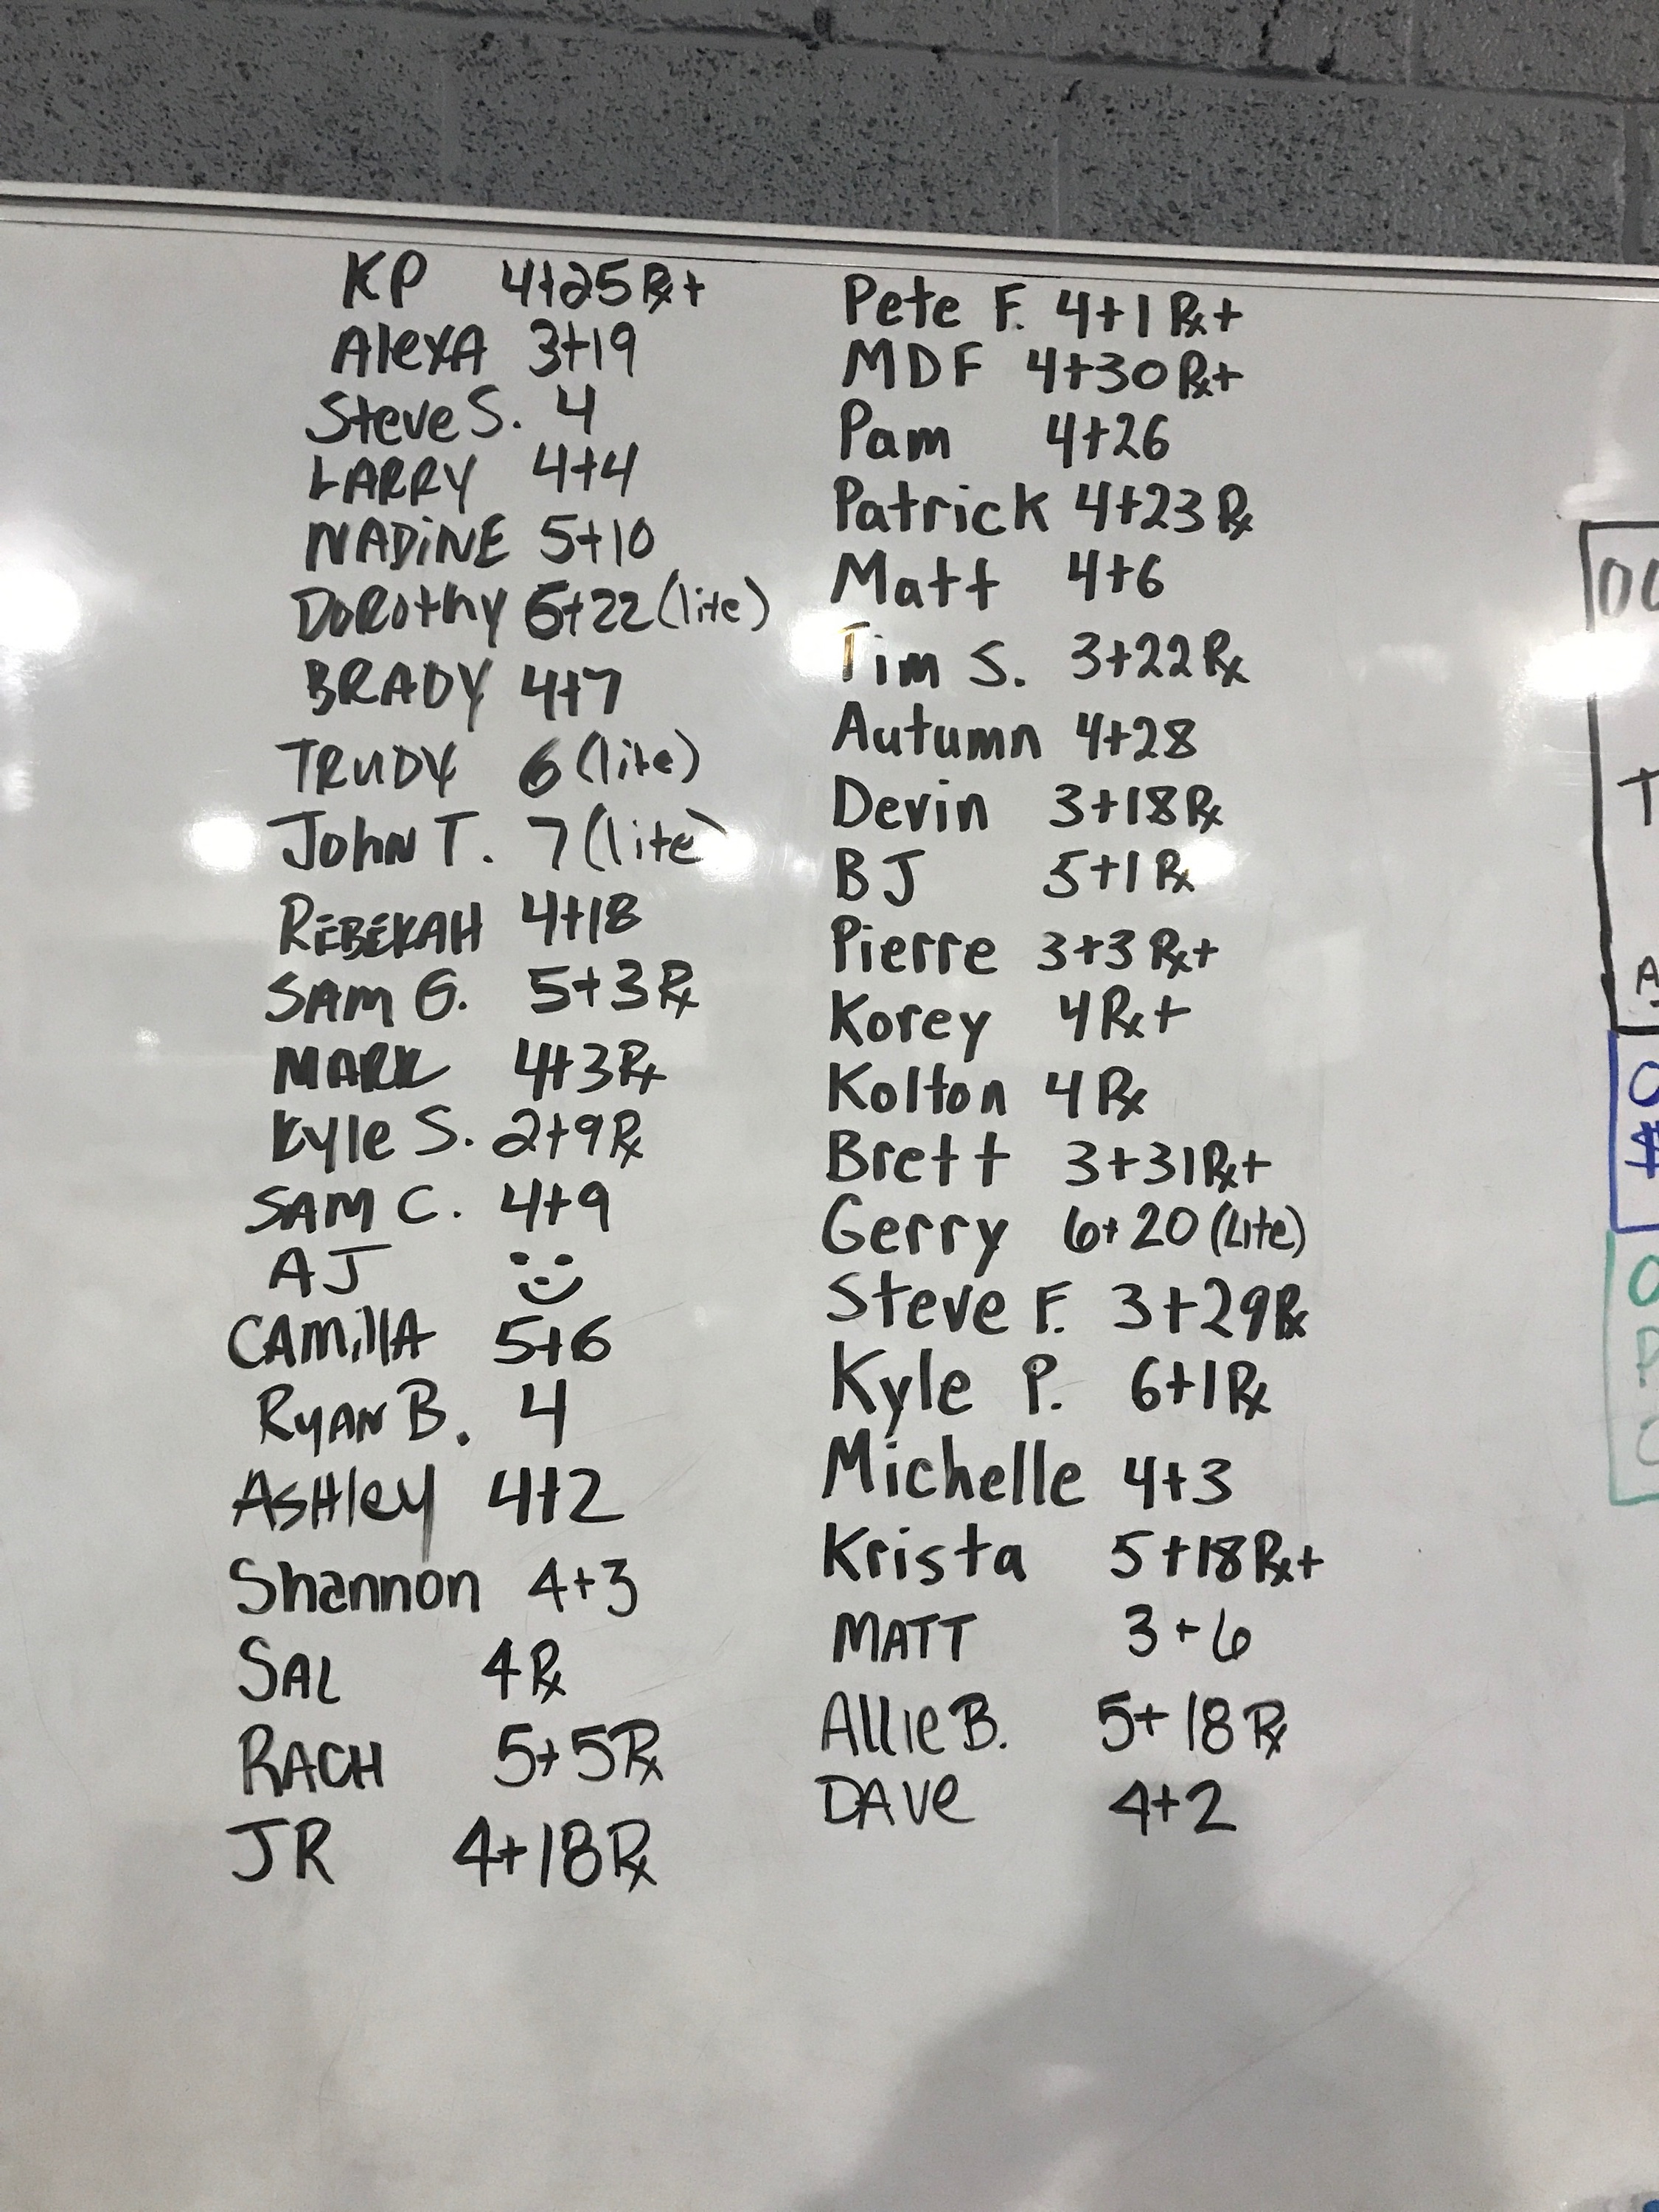 KP 4+25 Rx+
AlexA 3+19
Steve S. 4
LARRY 4+4
NADiNE 5+10
DoRothy 6+22 (lite)
BRADY 4+7
TRUDY 6 (lite)
JohN T. 7 (lite)
REBEKAH 4+18
SAM G. 5+3 Rx
MARK 4+3 Rx
Kyle S. 2+9 Rx
SAM C. 4+9
AJ
CAMillA 5+6
RyAN B. 4
AsHley 4+2
Shannon 4+3
SAL 4 Rx
RACH 5+5 Rx
JR 4+18 Rx
Pete F. 4+1 Rx+
MDF 4+30 Rx+
Pam 4+26
Patrick 4+23 Rx
Matt 4+6
Tim S. 3+22 Rx
Autumn 4+28
Devin 3+18 Rx
BJ 5+1 Rx
Pierre 3+3 Rx+
Korey 4 Rx+
Kolton 4 Rx
Brett 3+31 Rx+
Gerry 6+20 (Lite)
Steve F. 3+29 Rx
Kyle P. 6+1 Rx
Michelle 4+3
Krista 5+18 Rx+
MATT 3+6
Allie B. 5+18 Rx
DAve 4+2